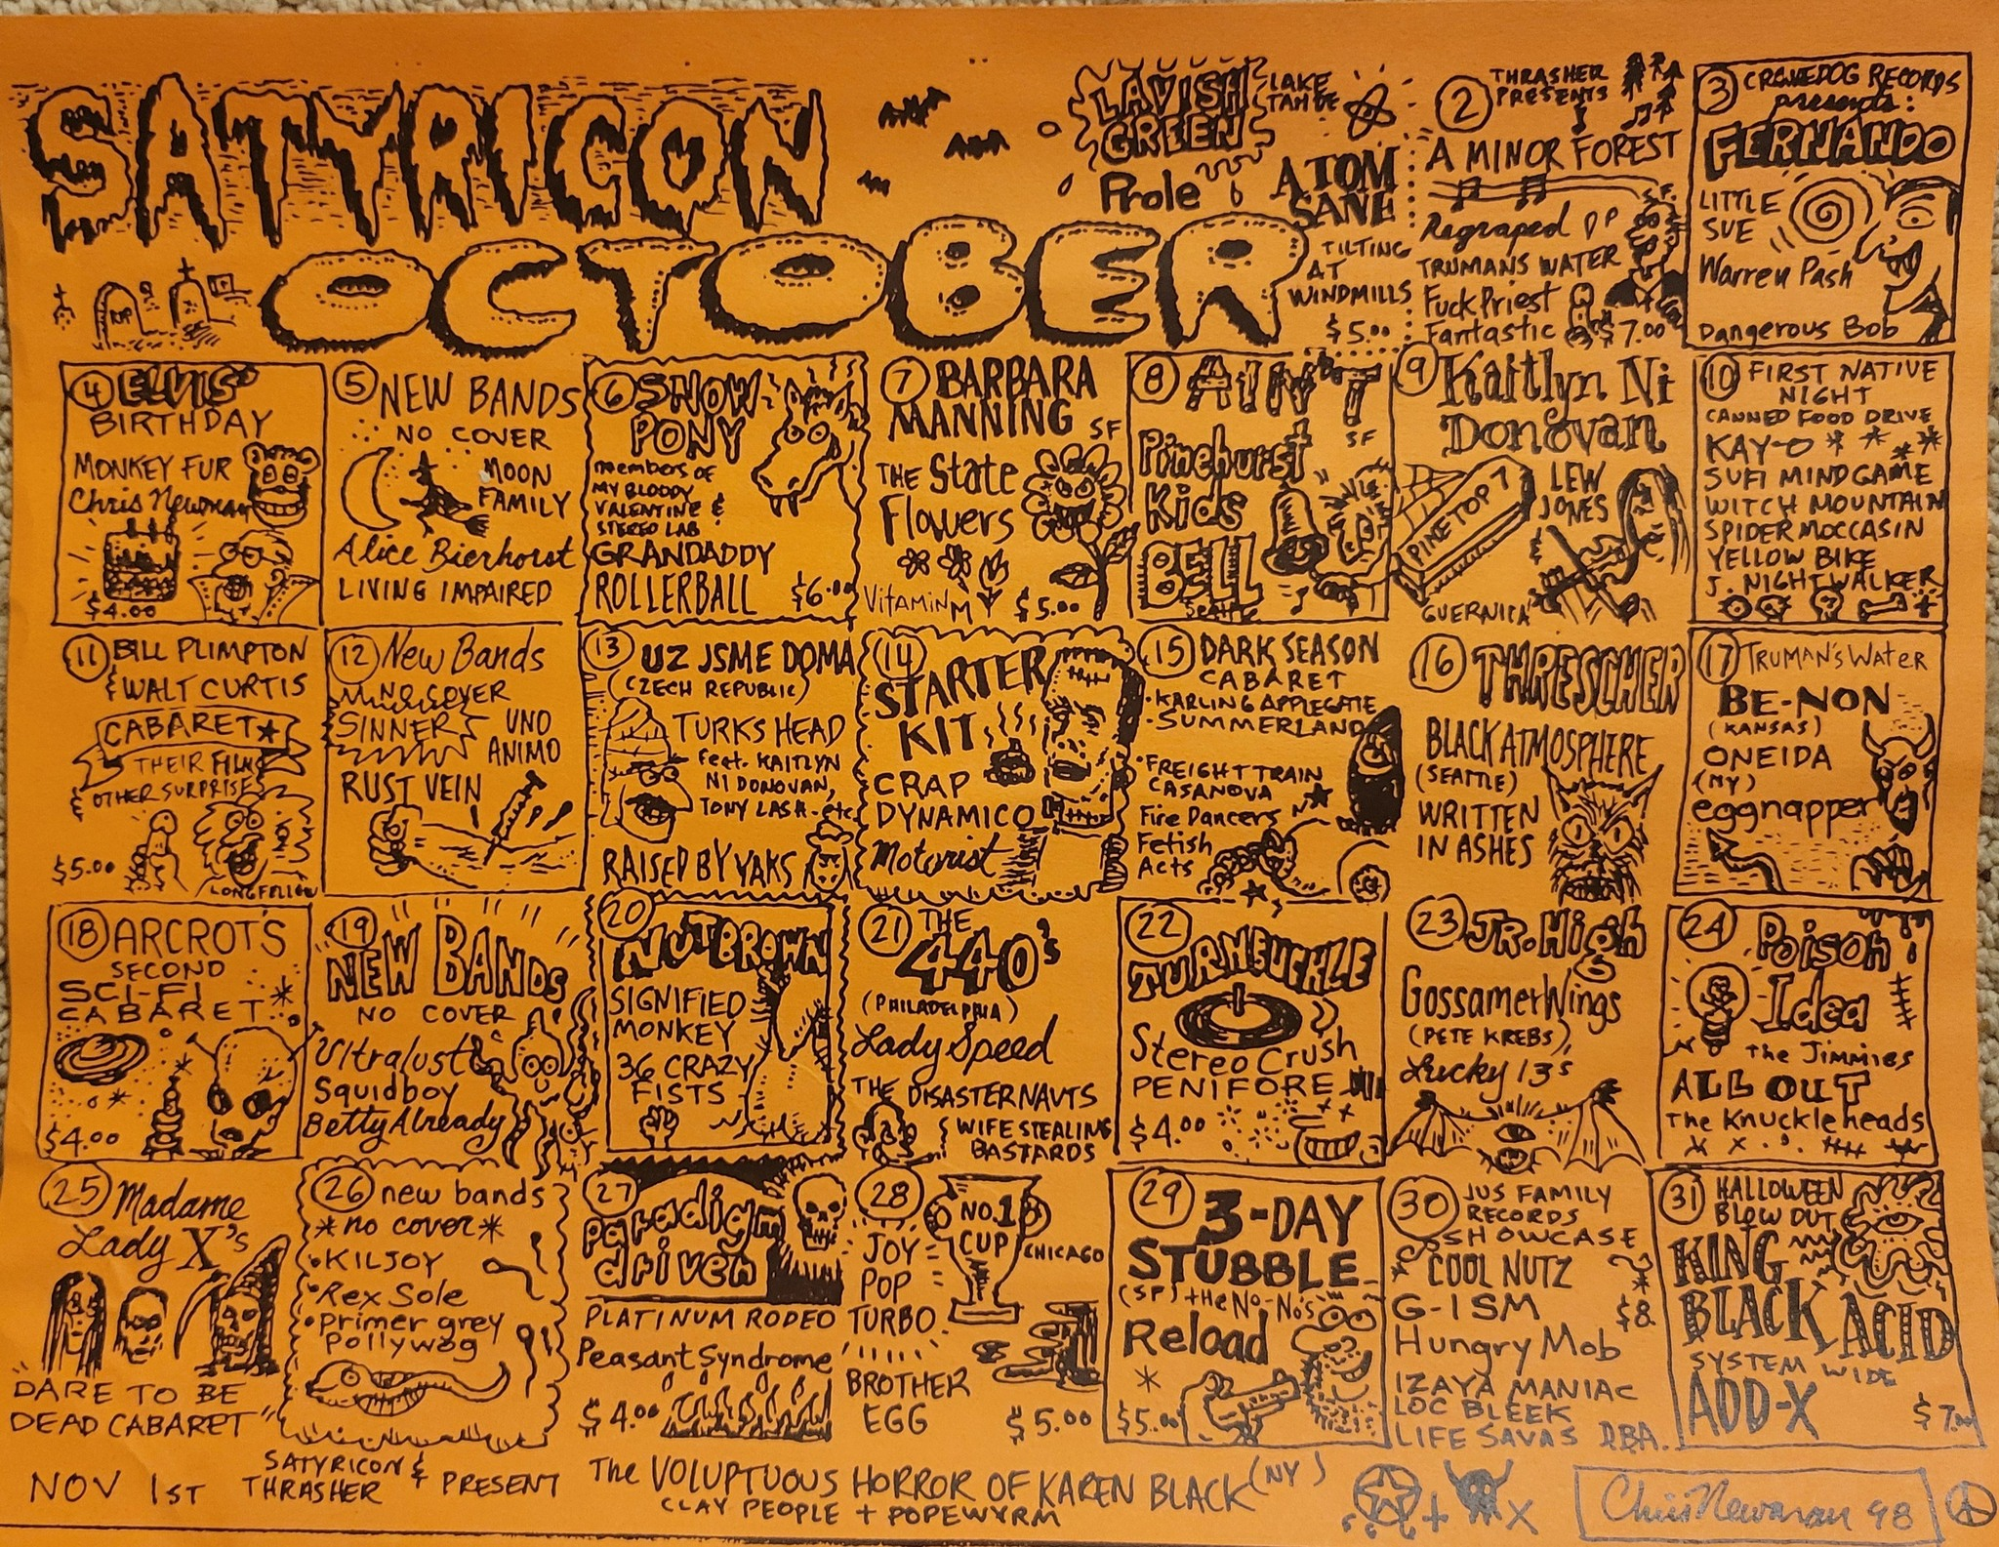 SATYRICON
OCTOBER
RIP
LAVISH
GREEN
LAKE
TAHOE
Prole
ATOM
SANE
TILTING
AT
WINDMILLS
$5.00
2 THRASHER
PRESENTS
A MINOR FOREST
S.F.
Regraped
TRUMANS WATER
Fuck Priest
Fantastic
$7.00
3 CROWEDOG RECORDS
presents:
FERNANDO
LITTLE
SUE
Warren Pash
Dangerous Bob
4 ELVIS'
BIRTHDAY
MONKEY FUR
Chris Newman
$4.00
5 NEW BANDS
NO COVER
MOON
FAMILY
Alice Bierhorst
LIVING IMPAIRED
6 SNOW
PONY
members of
MY BLOODY
VALENTINE &
STEREO LAB
GRANDADDY
ROLLERBALL
$6.00
7 BARBARA
MANNING
SF
THE State
Flowers
Vitamin M
$5.00
8 AIN'T
SF
Pinehurst
Kids
BELL
Seattle
9 Kaitlyn Ni
Donovan
PINE TOP 7
LEW
JONES
GUERNICA
10 FIRST NATIVE
NIGHT
CANNED FOOD DRIVE
KAY-O
SUFI MIND GAME
WITCH MOUNTAIN
SPIDER MOCCASIN
YELLOW BIKE
J. NIGHTWALKER
11 BILL PLIMPTON
& WALT CURTIS
CABARET
THEIR FILMS
& OTHER SURPRISES
$5.00
LONGFELLOW
12 New Bands
NO COVER
SINNER
UNO
ANIMO
RUST VEIN
13 UZ JSME DOMA
(CZECH REPUBLIC)
TURKS HEAD
feat. KAITLYN
NI DONOVAN,
TONY LASH. etc.
RAISED BY YAKS
14 STARTER
KIT
CRAP
DYNAMICO
Motorist
15 DARK SEASON
CABARET
• KARLING APPLEGATE
• SUMMERLAND
• FREIGHT TRAIN
CASANOVA
Fire Dancers
Fetish
Acts
16 THRESCHER
BLACK ATMOSPHERE
(SEATTLE)
WRITTEN
IN ASHES
17 TRUMAN'S Water
BE-NON
(KANSAS)
ONEIDA
(NY)
eggnapper
18 ARCROT'S
SECOND
SCI-FI
CABARET
$4.00
19 NEW BANDS
NO COVER
Ultralust
Squidboy
Betty Already
20 NUTBROWN
SIGNIFIED
MONKEY
36 CRAZY
FISTS
21 THE
440's
(PHILADELPHIA)
Lady Speed
THE DISASTERNAUTS
WIFE STEALING
BASTARDS
22 TURNBUCKLE
Stereo Crush
PENIFORE
$4.00
23 JR. High
Gossamer Wings
(PETE KREBS)
Lucky 13's
24 Poison
Idea
The Jimmies
ALL OUT
The Knuckleheads
25 Madame
Lady X's
"DARE TO BE
DEAD CABARET"
26 new bands
*no cover*
• KILJOY
• Rex Sole
• primer grey
Pollywog
27 paradigm
driven
PLATINUM RODEO
Peasant Syndrome
$4.00
28 NO. 1
CUP
CHICAGO
JOY
POP
TURBO
BROTHER
EGG
$5.00
29 3-DAY
STUBBLE
(SF) + the No-No's
Reload
$5.00
30 JUS FAMILY
RECORDS
SHOWCASE
COOL NUTZ
G-ISM
$8.
Hungry Mob
IZAYA MANIAC
LOC BLEEK
LIFE SAVAS DBA.
31 HALLOWEEN
BLOW OUT
KING
BLACK ACID
SYSTEM WIDE
ADD-X
$7.00
NOV 1ST SATYRICON & THRASHER PRESENT The VOLUPTUOUS HORROR OF KAREN BLACK (NY)
CLAY PEOPLE + POPEWYRM
Chris Newman 98